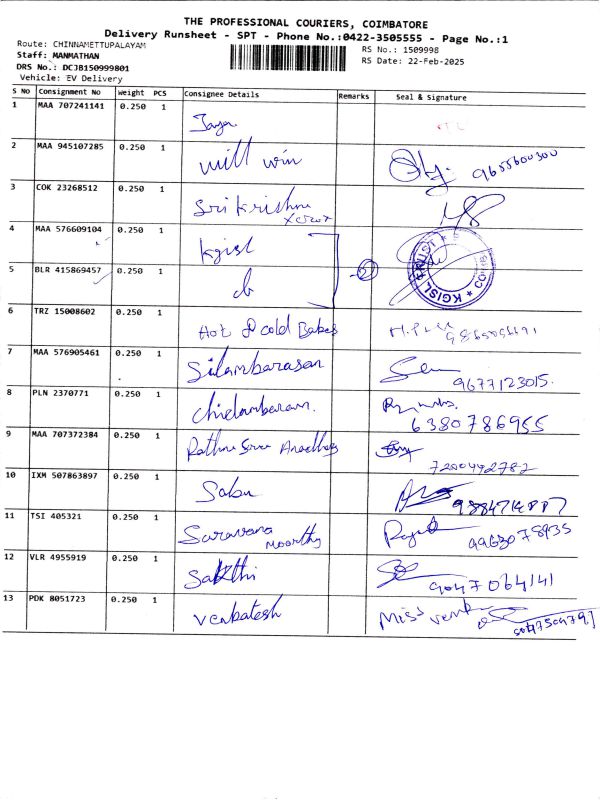 THE PROFESSIONAL COURIERS, COIMBATORE
Delivery Runsheet - SPT - Phone No.:0422-3505555 - Page No.:1
Route: CHINNAMETTUPALAYAM
RS No.: 1509998
Staff: MANMATHAN
RS Date: 22-Feb-2025
DRS No.: DCJB150999801
Vehicle: EV Delivery
S NO Consignment No Weight PCS Consignee Details Remarks Seal & Signature
1 MAA 707241141 0.250 1 Jaya
2 MAA 945107285 0.250 1 will win 9655600300
3 COK 23268512 0.250 1 Sri Krishna
Xerox
4 MAA 576609104 0.250 1 Kgisl
5 BLR 415869457 0.250 1 do
KGISL TRUST
6 TRZ 15008602 0.250 1 Hot & cold Bakes
7 MAA 576905461 0.250 1 Silambarasan
9677123015.
8 PLN 2370771 0.250 1 Chidambaram.
6380786955
9 MAA 707372384 0.250 1
7200492782
10 IXM 507863897 0.250 1 Sabu
11 TSI 405321 0.250 1 Saravana
Moorthy 9963078935
12 VLR 4955919 0.250 1 Sakthi
9047064141
13 PDK 8051723 0.250 1 Venbatesh Miss